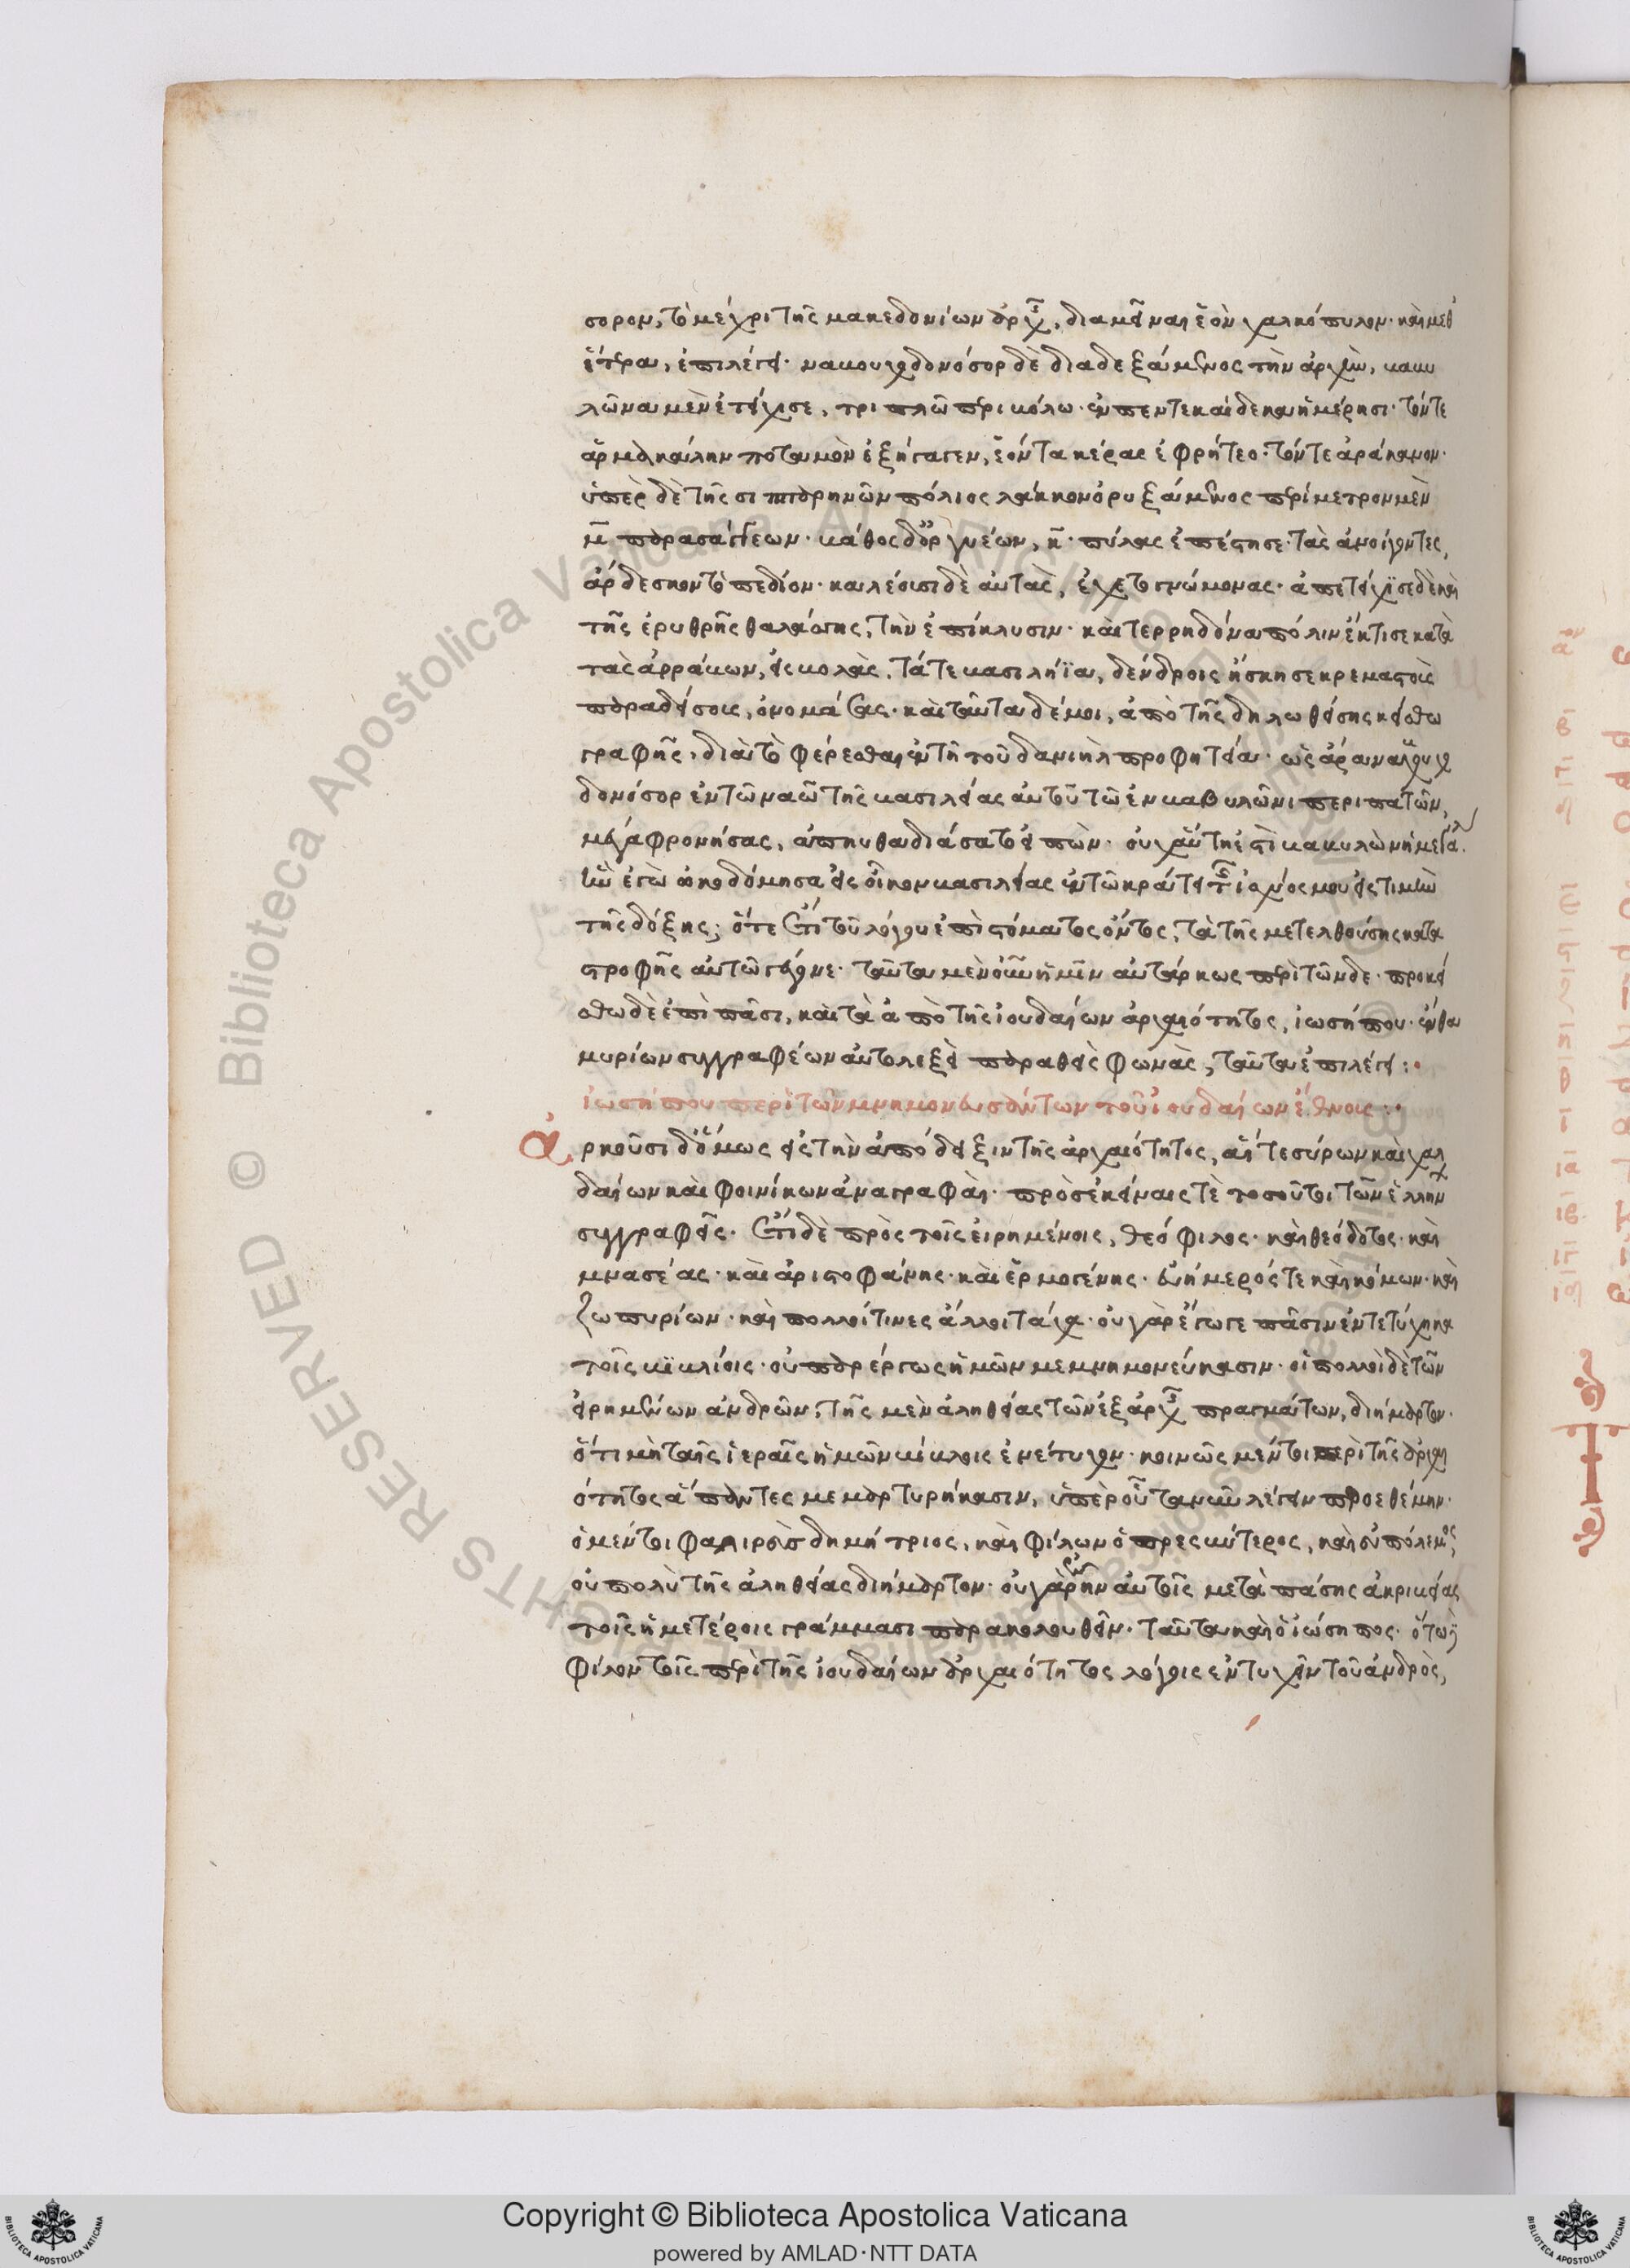 σορον, τὸ μέχρι τῆς μακεδονίων ἀρχῆς, διαμεῖναι ἐὸν χαλκόπυλον· καὶ μεθ'
ἕτερα, ἐπιλέγει· ναβουχοδονόσορ δὲ διαδεξάμενος τὴν ἀρχὴν, βαβυ
λῶνα μὲν ἐτείχισε, τριπλῶ περιβόλω· ἐν πεντεκαίδεκα ἡμέρησι· τόν τε
ἀρμακάλην ποταμὸν ἐξήγαγεν, ἐόντα κέρας ἐφρήτεο· τόν τε ἀράκανον·
ὑπὲρ δὲ τῆς σιππαρηνῶν πόλιος λάκκον ὀρυξάμενος περίμετρον μὲν
μ̅ παρασαγγέων· βάθος δ' ὀργυέων, κ̅· πύλας ἐπέστησε· τὰς ἀνοίγοντες,
ἄρδεσκον τὸ πεδίον· καλέουσι δὲ αὐτὰς, ἐχετογνώμονας· ἀπετείχισε δὲ καὶ
τῆς ἐρυθρῆς θαλάσσης, τὴν ἐπίκλυσιν· καὶ τερρηδόνα πόλιν ἔκτισε κατὰ
τὰς ἀρράβων, εἰσβολὰς, τά τε βασιλήϊα, δένδροις ἤσκησε κρεμαστοὺς
παραδείσους, ὀνομάσας· καὶ ταῦτα δέ μοι, ἀπὸ τῆς δηλωθείσης κείσθω
γραφῆς, διὰ τὸ φέρεσθαι ἐν τῆ τοῦ δανιὴλ προφητεία· ὡς ἄρα ναβουχο
δονόσορ ἐν τῶ ναῶ τῆς βασιλείας αὐτοῦ τῶ ἐν βαβυλῶνι περιπατῶν,
μέγα φρονήσας, ἀπηυθαδιάσατο εἰπών· οὐχ αὕτη ἐστὶ βαβυλὼν ἡ μεγάλ
ην ἐγὼ ὠκοδόμησα εἰς οἶκον βασιλείας ἐν τῶ κράτει τῆς ἰσχύος μου εἰς τιμὴν
τῆς δόξης; ὅτε ἔτι τοῦ λόγου ἐπὶ στόματος ὄντος, τὰ τῆς μετελθούσης κατα
στροφῆς αὐτῶ γέγονε· ταῦτα μὲν οὖν ἡμῖν αὐτάρκως περὶ τῶνδε· προκεί
σθω δὲ ἐπὶ πᾶσι, καὶ τὰ ἀπὸ τῆς ἰουδαίων ἀρχαιότητος, ἰωσήπου· ἔνθα
μυρίων συγγραφέων αὐτολεξεὶ παραθεὶς φωνὰς, ταῦτα ἐπιλέγει:·
ἰωσήπου περὶ τῶν μνημονευσάντων τοῦ ἰουδαίων ἔθνους:·
Ἀρκοῦσι δ' ὅμως εἰς τὴν ἀπόδειξιν τῆς ἀρχαιότητος, αἵ τε σύρων καὶ χαλ
δαίων καὶ φοινίκων ἀναγραφαὶ· πρὸς ἐκείναις τὲ τοσοῦτοι τῶν ἑλλήν
συγγραφεῖς· ἔτι δὲ πρὸς τοῖς εἰρημένοις, θεόφιλος· καὶ θεόδοτος· καὶ
μνασέας· καὶ ἀριστοφάνης· καὶ ἑρμογένης· εὐήμερός τε καὶ κόμων· καὶ
ζωπυρίων· καὶ πολλοί τινες ἄλλοι τάχα· οὐ γὰρ ἔγωγε πᾶσιν ἐντετύχηκα
τοῖς βιβλίοις· οὐ παρέργως ἡμῶν μεμνημονεύκασιν· οἱ πολλοὶ δὲ τῶν
εἰρημένων ἀνδρῶν, τῆς μὲν ἀληθείας τῶν ἐξ ἀρχῆς πραγμάτων, διήμαρτον·
ὅτι μὴ ταῖς ἱεραῖς ἡμῶν βίβλοις ἐνέτυχον· κοινῶς μέντοι περὶ τῆς ἀρχαι
ότητος ἅπαντες μεμαρτυρήκασιν, ὑπὲρ οὗ τανῦν λέγειν προεθέμην·
ὁ μέντοι φαλιρεὺς δημήτριος, καὶ φίλων ὁ πρεσβύτερος, καὶ εὐπόλεμος,
οὐ πολὺ τῆς ἀληθείας διήμαρτον· οὐ γὰρ ἐνῆν αὐτοῖς μετὰ πάσης ἀκριβείας
τοῖς ἡμετέροις γράμμασι παρακολουθεῖν· ταῦτα καὶ ὁ ἰώσηπος· ὅτω δὲ
φίλον τοῖς περὶ τῆς ἰουδαίων ἀρχαιότητος λόγοις ἐντυχεῖν τοῦ ἀνδρὸς,
Copyright © Biblioteca Apostolica Vaticana
powered by AMLAD·NTT DATA